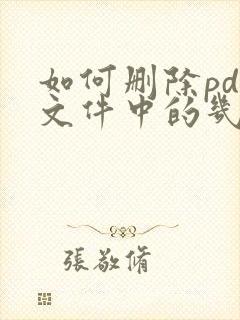 如何删除pd
文件中的几
張敬脩